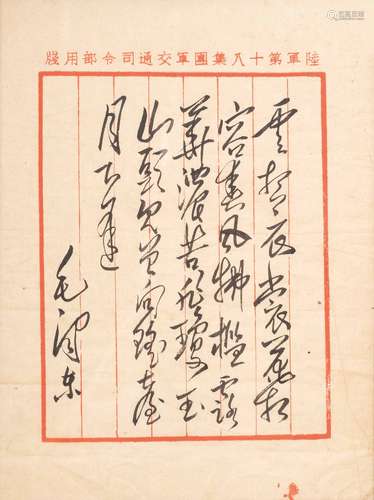 陸軍第十八集團軍交通司令部用牋
雲想衣裳花想
容春風拂檻露
華濃若非群玉
山頭見會向瑤臺
月下逢
毛澤东